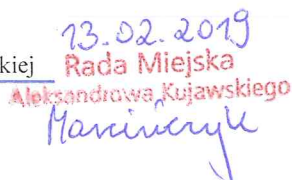 13.02.2019
kiej Rada Miejska
Aleksandrowa Kujawskiego
Marcińczyk